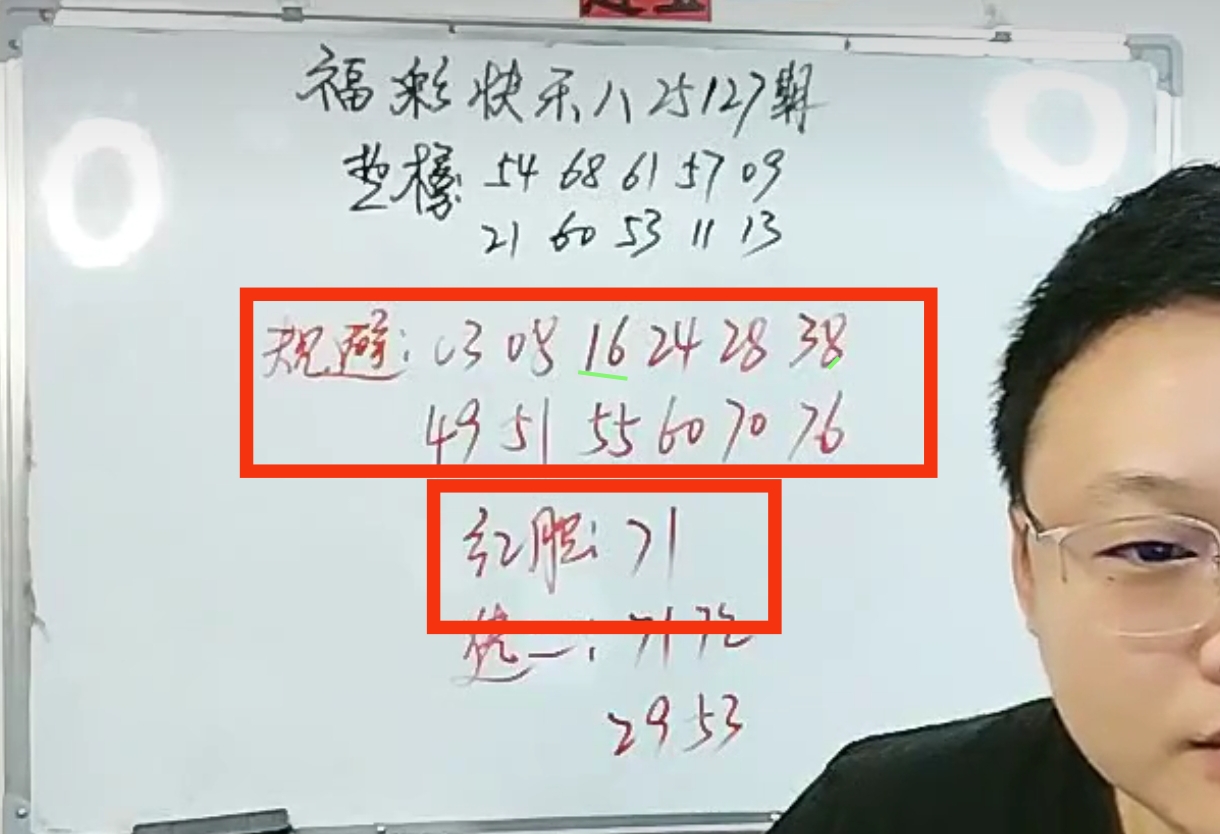 福彩快乐八25127期
垫樣: 54 68 61 57 09
21 60 53 11 13
规避: 03 08 16 24 28 38
49 51 55 60 70 76
红胆: 71
选二: 71 72
29 53